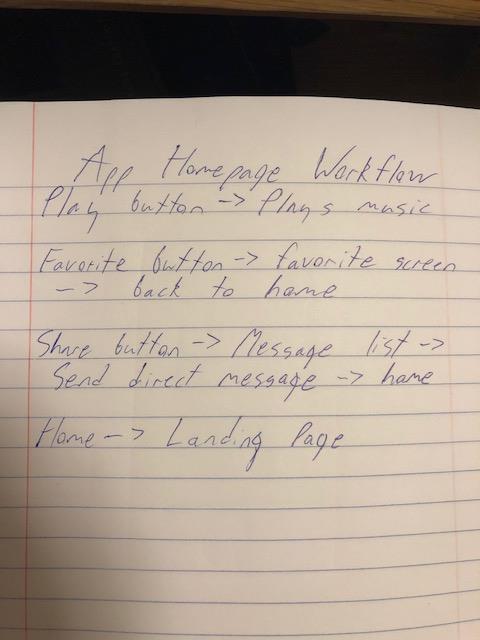 App Homepage Workflow
Play button -> Plays music
Favorite button -> favorite screen
--> back to home
Share button -> Message list ->
Send direct message -> home
Home --> Landing Page